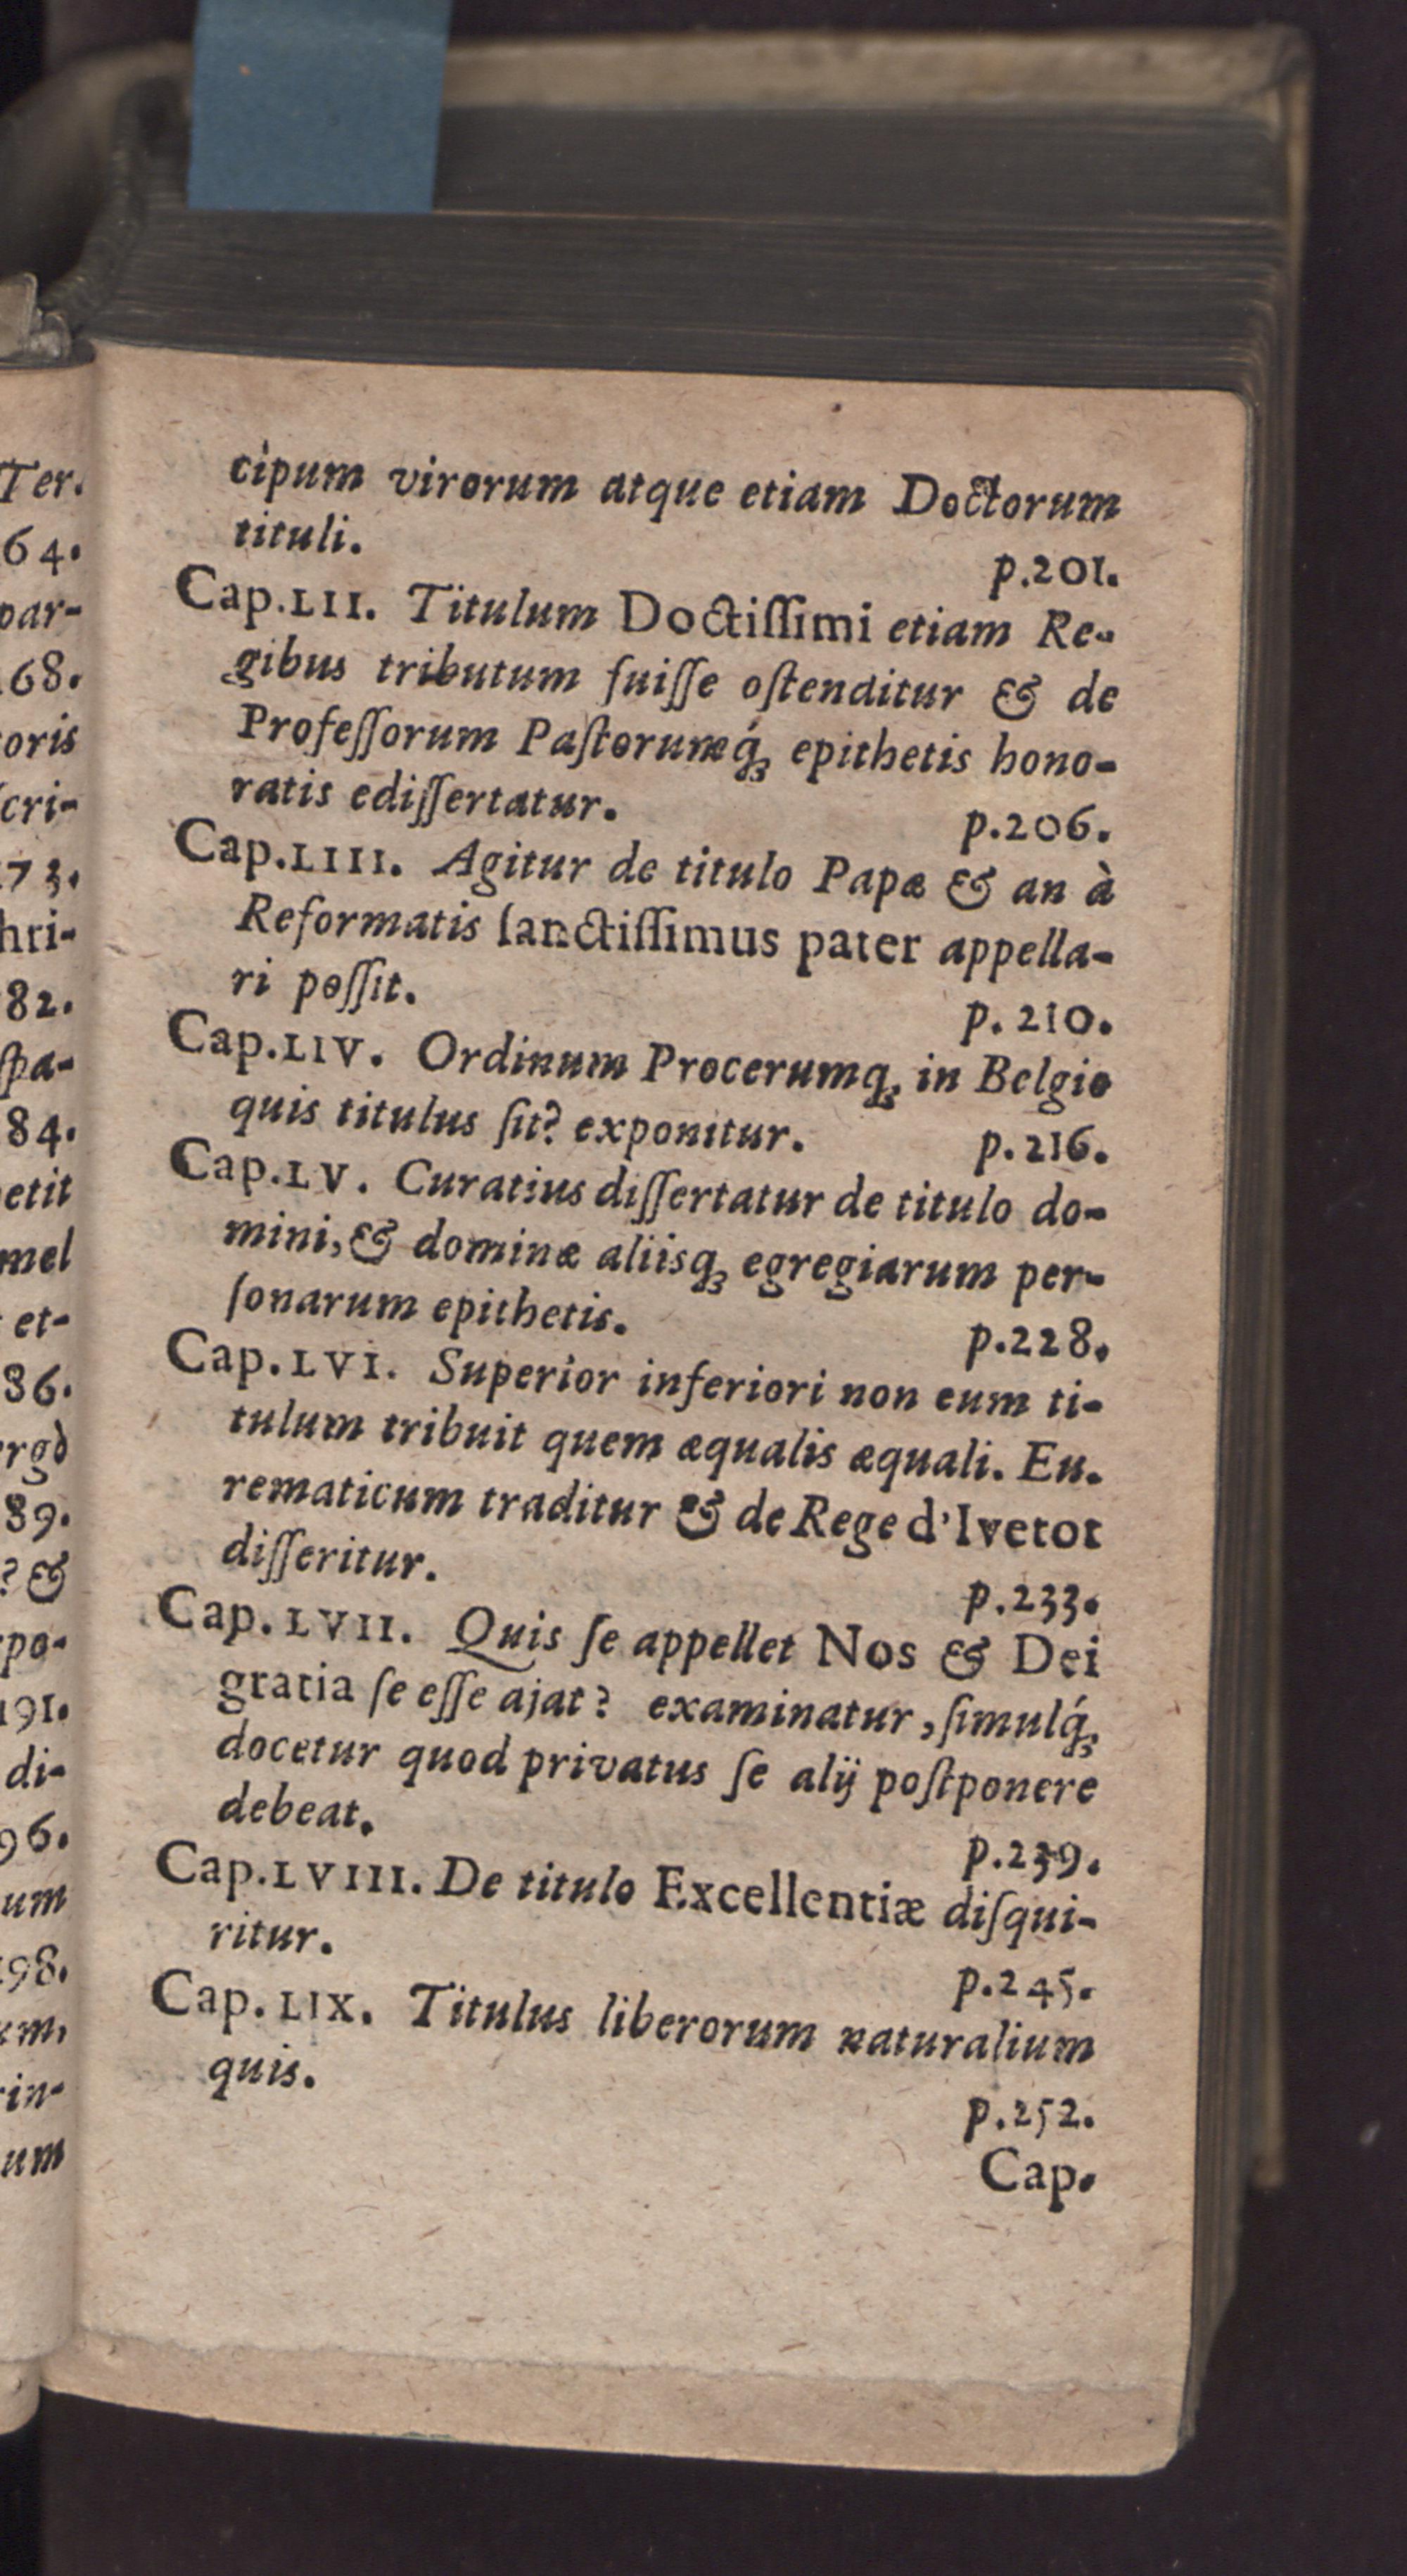 cipum virorum atque etiam Doctorum
tituli. p.201.
Cap.LII. Titulum Doctiſſimi etiam Re-
gibus tributum fuiſſe oſtenditur & de
Profeſſorum Paſtorumq́; epithetis hono-
ratis ediſſertatur. p.206.
Cap.LIII. Agitur de titulo Papæ & an à
Reformatis ſanctiſſimus pater appella-
ri poſſit. p.210.
Cap.LIV. Ordinum Procerumq; in Belgio
quis titulus ſit? exponitur. p.216.
Cap.LV. Curatius diſſertatur de titulo do-
mini, & dominæ aliisq; egregiarum per-
ſonarum epithetis. p.228.
Cap.LVI. Superior inferiori non eum ti-
tulum tribuit quem æqualis æquali. Eu.
rematicum traditur & de Rege d'Ivetot
diſſeritur. p.233.
Cap.LVII. Quis ſe appellet Nos & Dei
gratia ſe eſſe ajat? examinatur, ſimulq́;
docetur quod privatus ſe alij poſtponere
debeat. p.239.
Cap.LVIII. De titulo Excellentiæ diſqui-
ritur. p.245.
Cap.LIX. Titulus liberorum naturalium
quis. p.252.
Cap.